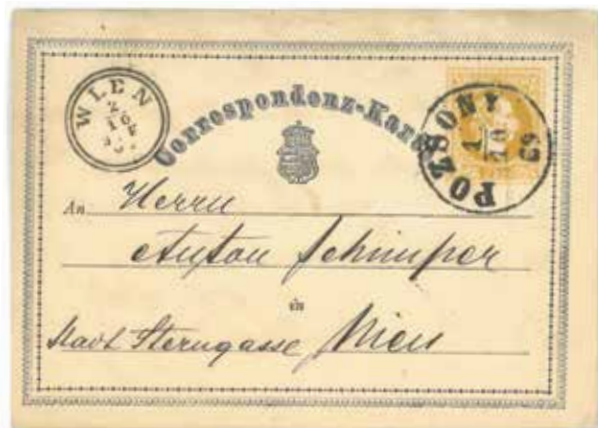 WIEN
2
10
Correspondenz-Karte
POZSONY
1
10
69
An Herrn
Anton Schimper
in
Stadt Sterngasse Wien